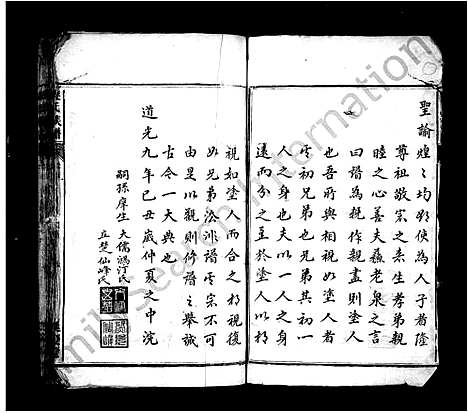 聖諭煌々均欲使為人子者隆
尊祖敬宗之念生孝弟親
睦之心善夫蘇老泉之言
曰譜為親作親盡則塗人
也吾所與相視如塗人者
其初兄弟也兄弟其初一
人之身也夫以一人之身
遠而分之至於塗人以初
視如塗人而合之初視復
如兄弟於非譜其宗不可
由是以觀則修譜之舉誠
古今一大典也
道光九年己丑歲仲夏之中浣
嗣孫庠生大儒
立楚仙峰氏